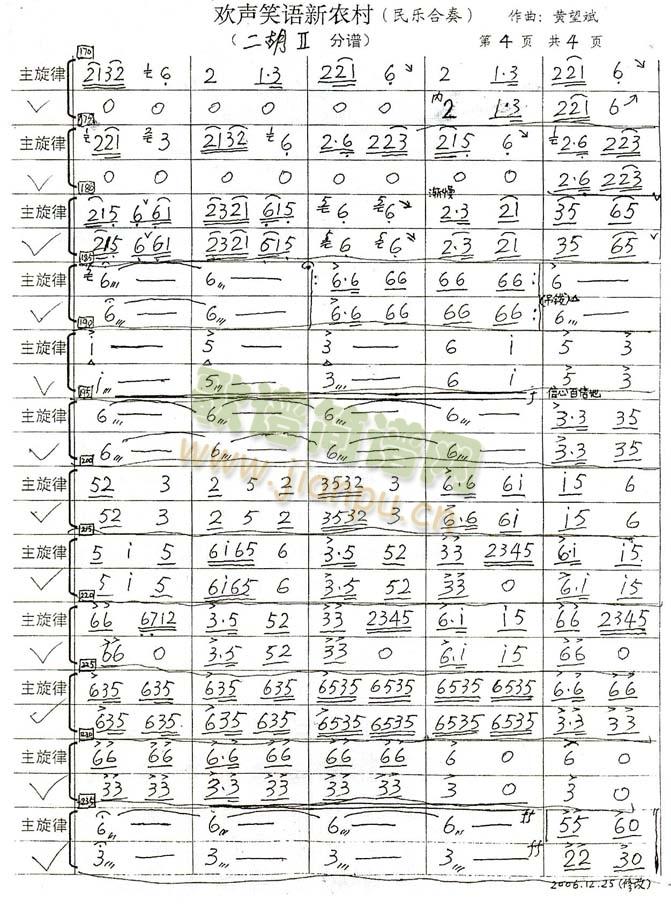 欢声笑语新农村（民乐合奏） 作曲: 黄望斌
（二胡 II 分谱） 第 4 页 共 4 页
170
主旋律 2132 6 2 1·3 221 6 2 1·3 221 6
0 0 0 0 0 0 内 2 1·3 221 6
175
主旋律 221 3 2132 6 2·6 223 215 6 2·6 223
0 0 0 0 0 0 0 0 2·6 223
180
渐慢
主旋律 215 661 2321 615 6 6 2·3 21 35 65
215 661 2321 615 6 6 2·3 21 35 65
185
主旋律 6 — 6 — 6·6 66 66 66 6 —
6 — 6 — 6·6 66 66 66 6 —
190
主旋律 i — 5 — 3 — 6 i 5 3
i — 5 — 3 — 6 i 5 3
195
f 信心百倍地
主旋律 6 — 6 — 6 — 6 — 3·3 35
6 — 6 — 6 — 6 — 3·3 35
200
主旋律 52 3 2 5 2 3532 3 6·6 6i i5 6
52 3 2 5 2 3532 3 6·6 6i i5 6
215
主旋律 5 i 5 6i65 6 3·5 52 33 2345 6·i i5
5 i 5 6i65 6 3·5 52 33 0 6·i i5
220
主旋律 66 6712 3·5 52 33 2345 6·i i5 66 2345
66 0 3·5 52 33 0 6·i i5 66 0
225
主旋律 635 635 635 635 6535 6535 6535 6535 6·6 66
635 635 635 635 6535 6535 6535 6535 3·3 33
230
主旋律 66 66 6·6 66 66 66 6 0 6 0
33 33 3·3 33 33 33 3 0 3 0
235
主旋律 6 — 6 — 6 — 6 — ff 55 60
3 — 3 — 3 — 3 — ff 22 30
2006.12.25(修改)
歌谱简谱网
www.jianpu.cn